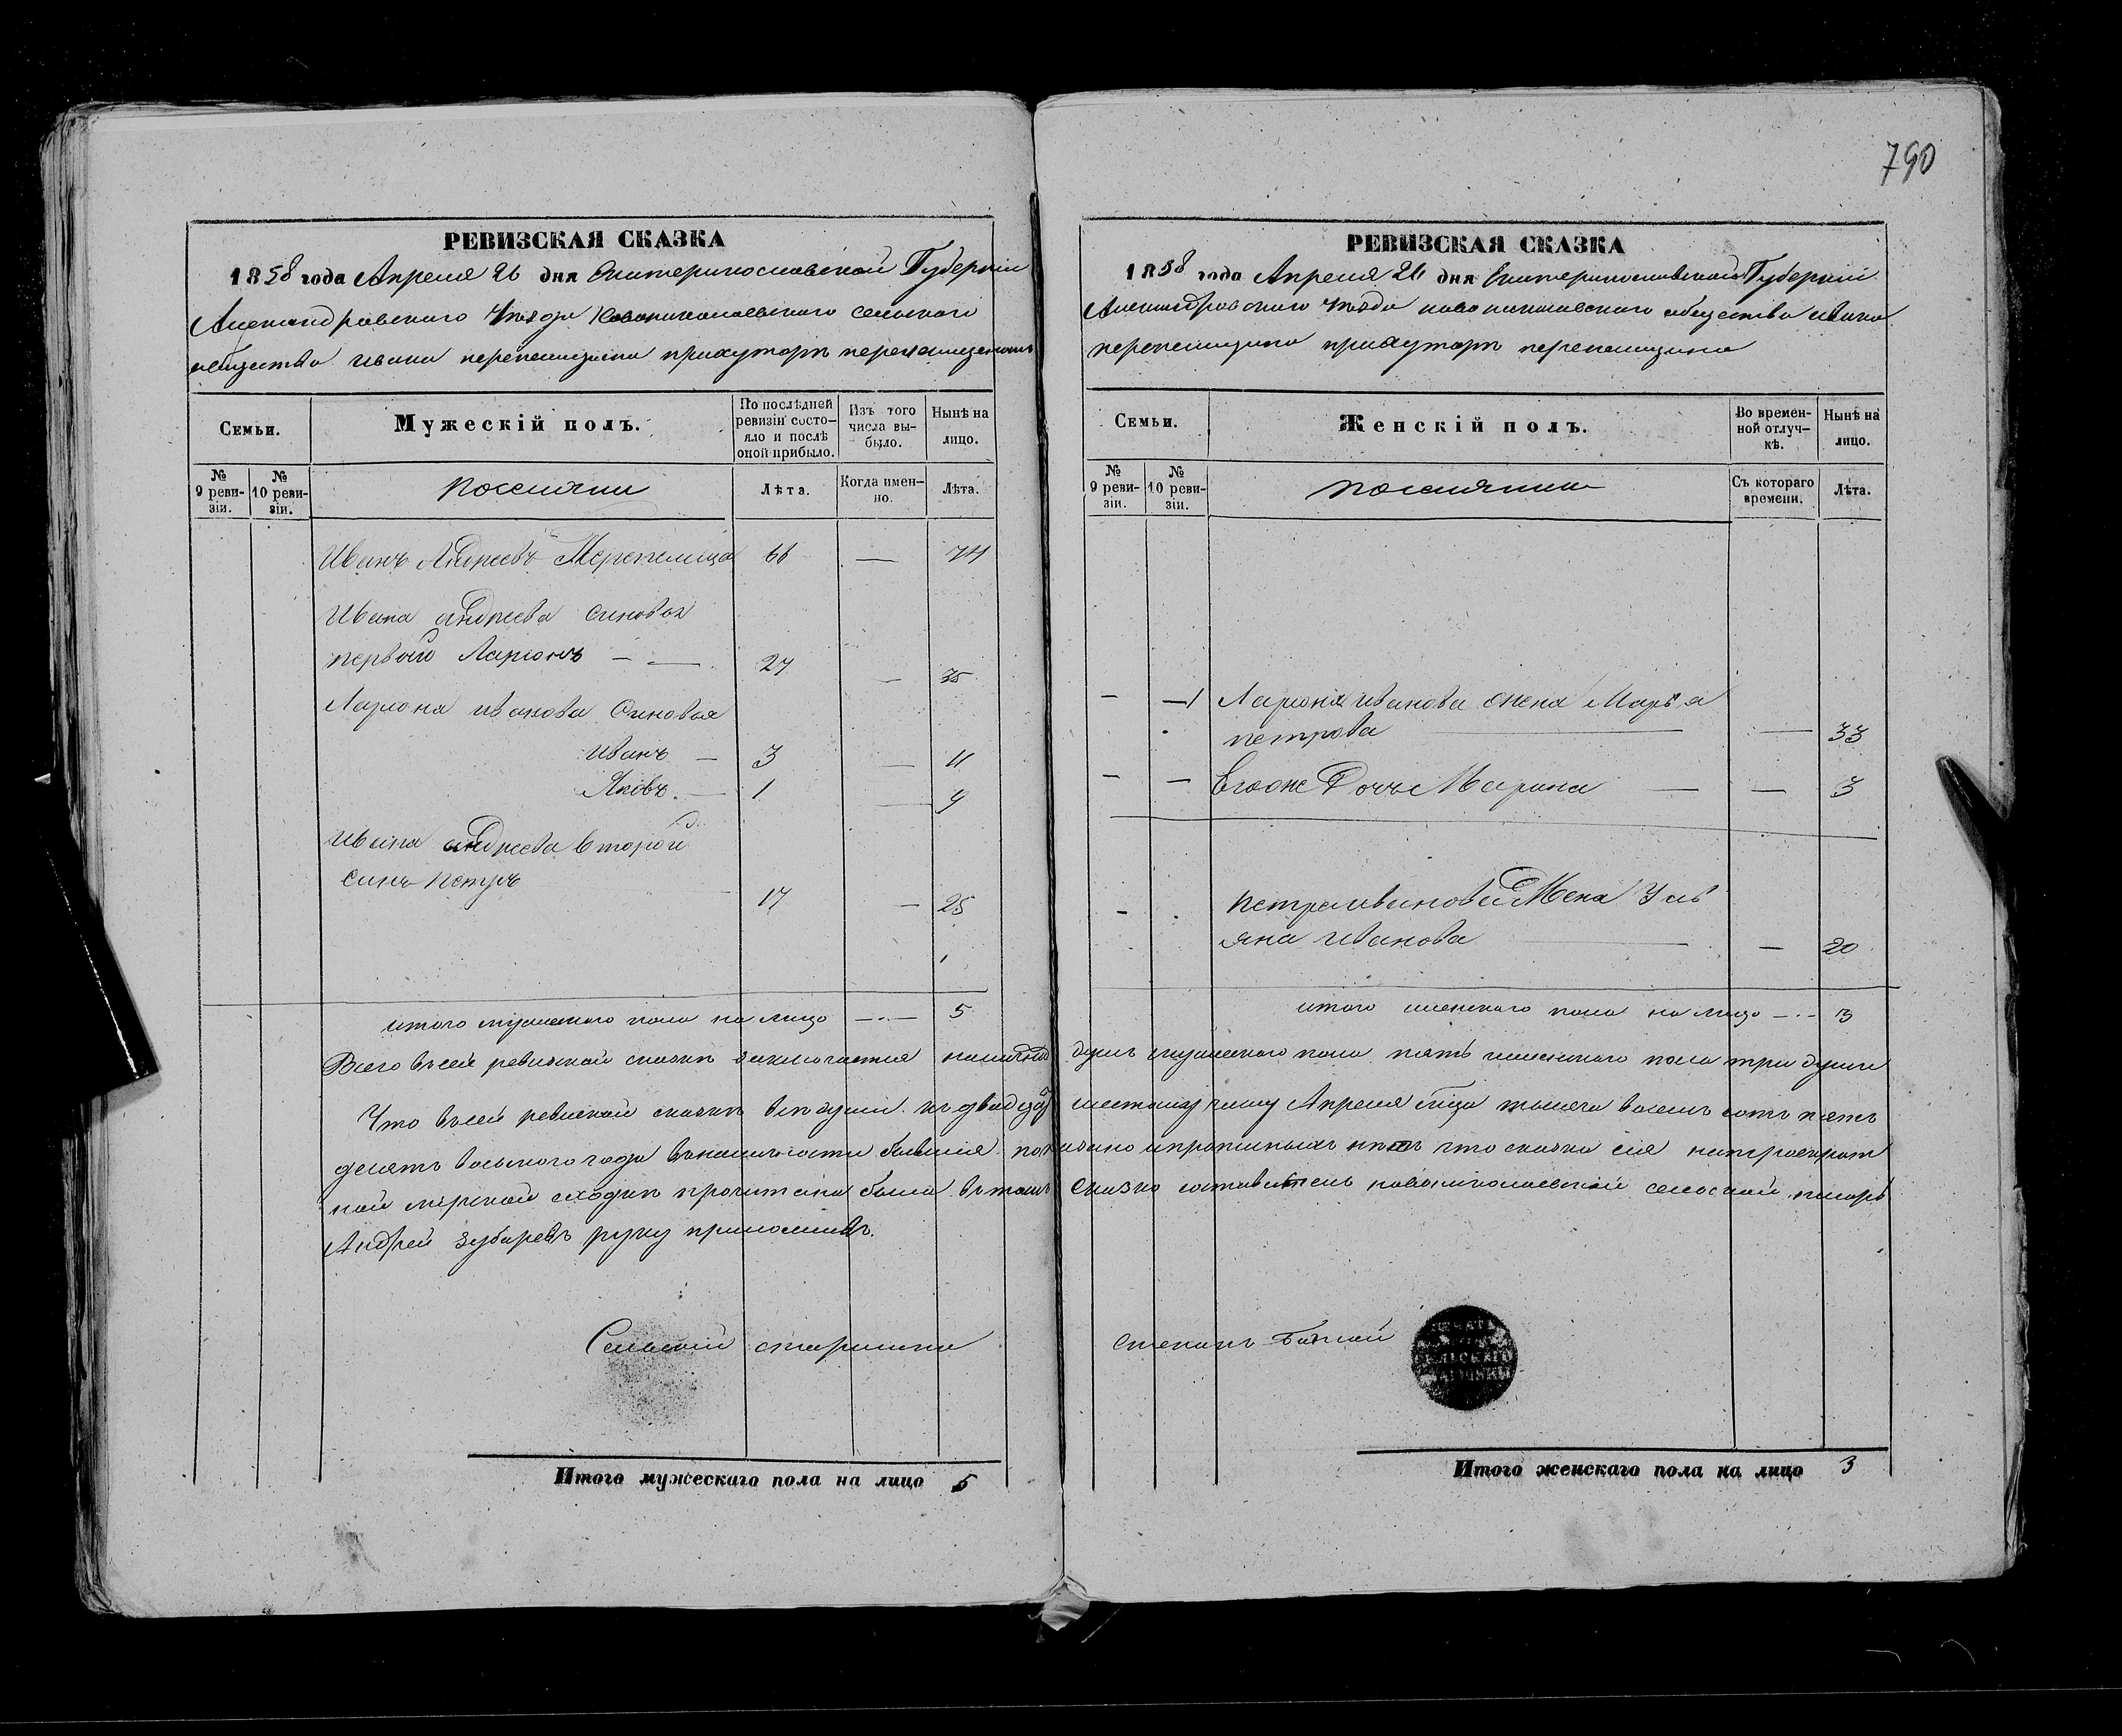 790
РЕВИЗСКАЯ СКАЗКА
1858 года Апреля 26 дня Екатеринославской Губернии
Александровского Уезда Новониколаевского сельского
общества ивана перепелицина прихуторе перепелицином
Семьи.
Мужескій полъ.
По послѣдней ревизіи состояло и послѣ оной прибыло.
Изъ того числа выбыло.
Нынѣ на лицо.
№ 9 ревизіи.
№ 10 ревизіи.
поселяни
Лѣта.
Когда именно.
Лѣта.
Иванъ Андреевъ Перепелица 66 — 74
Ивана андреева синовья
первый Ларионъ — — 27 — 35
Лариона иванова Синовья
Иванъ — 3 — 11
Яковъ — 1 — 9
Ивана андреева второй
синъ Петръ 17 — 25
итого мужеского пола на лицо — 5
РЕВИЗСКАЯ СКАЗКА
1858 года Апреля 26 дня Екатеринославской Губернии
Александровского Уезда новониколаевского общества ивана
перепелицина прихуторе перепелицина
Семьи.
Женскій полъ.
Во временной отлучкѣ.
Нынѣ на лицо.
№ 9 ревизіи.
№ 10 ревизіи.
поселянки
Съ котораго времени.
Лѣта.
— —1 Лариона иванова жена Марья
петрова — 33
— — Егоже Дочь Марина — — 3
петра иванова Жена Уль
яна иванова — 20
итого женского пола на лицо — 3
Всего въсей ревизской сказке заключается наличных душъ мужеского пола пять женского пола три души
Что въсей ревизской сказке вседуши къ двадцать шестому числу Апреля м͠ца тысяча восемь сотъ пять
десять восьмого года вналичности бывшия показано и прописныхъ нетъ что сказка сия натроекрат
ной мирской сходке прочитана была втомъ Сказко составитель новониколаевский сельской писарь
Андрей Зубаревъ руку приложилъ.
Сельский старшина Степанъ
Итого мужескаго пола на лицо 5
Итого женскаго пола на лицо 3